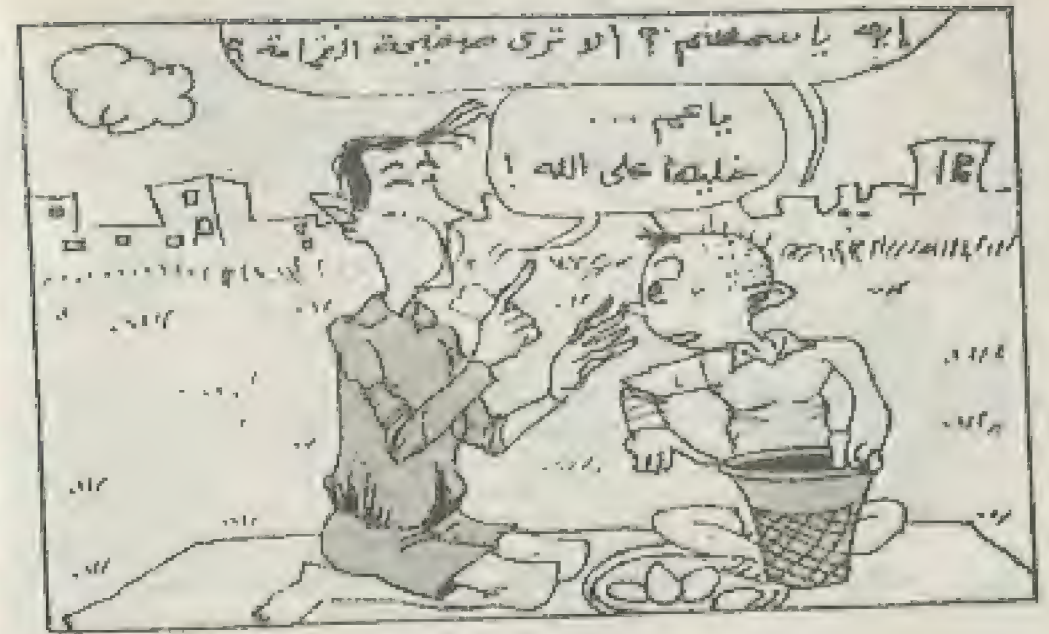 يا سمسم ؟ ألا ترى صفيحة الزبالة ؟
يا عم ...
خليها على الله !